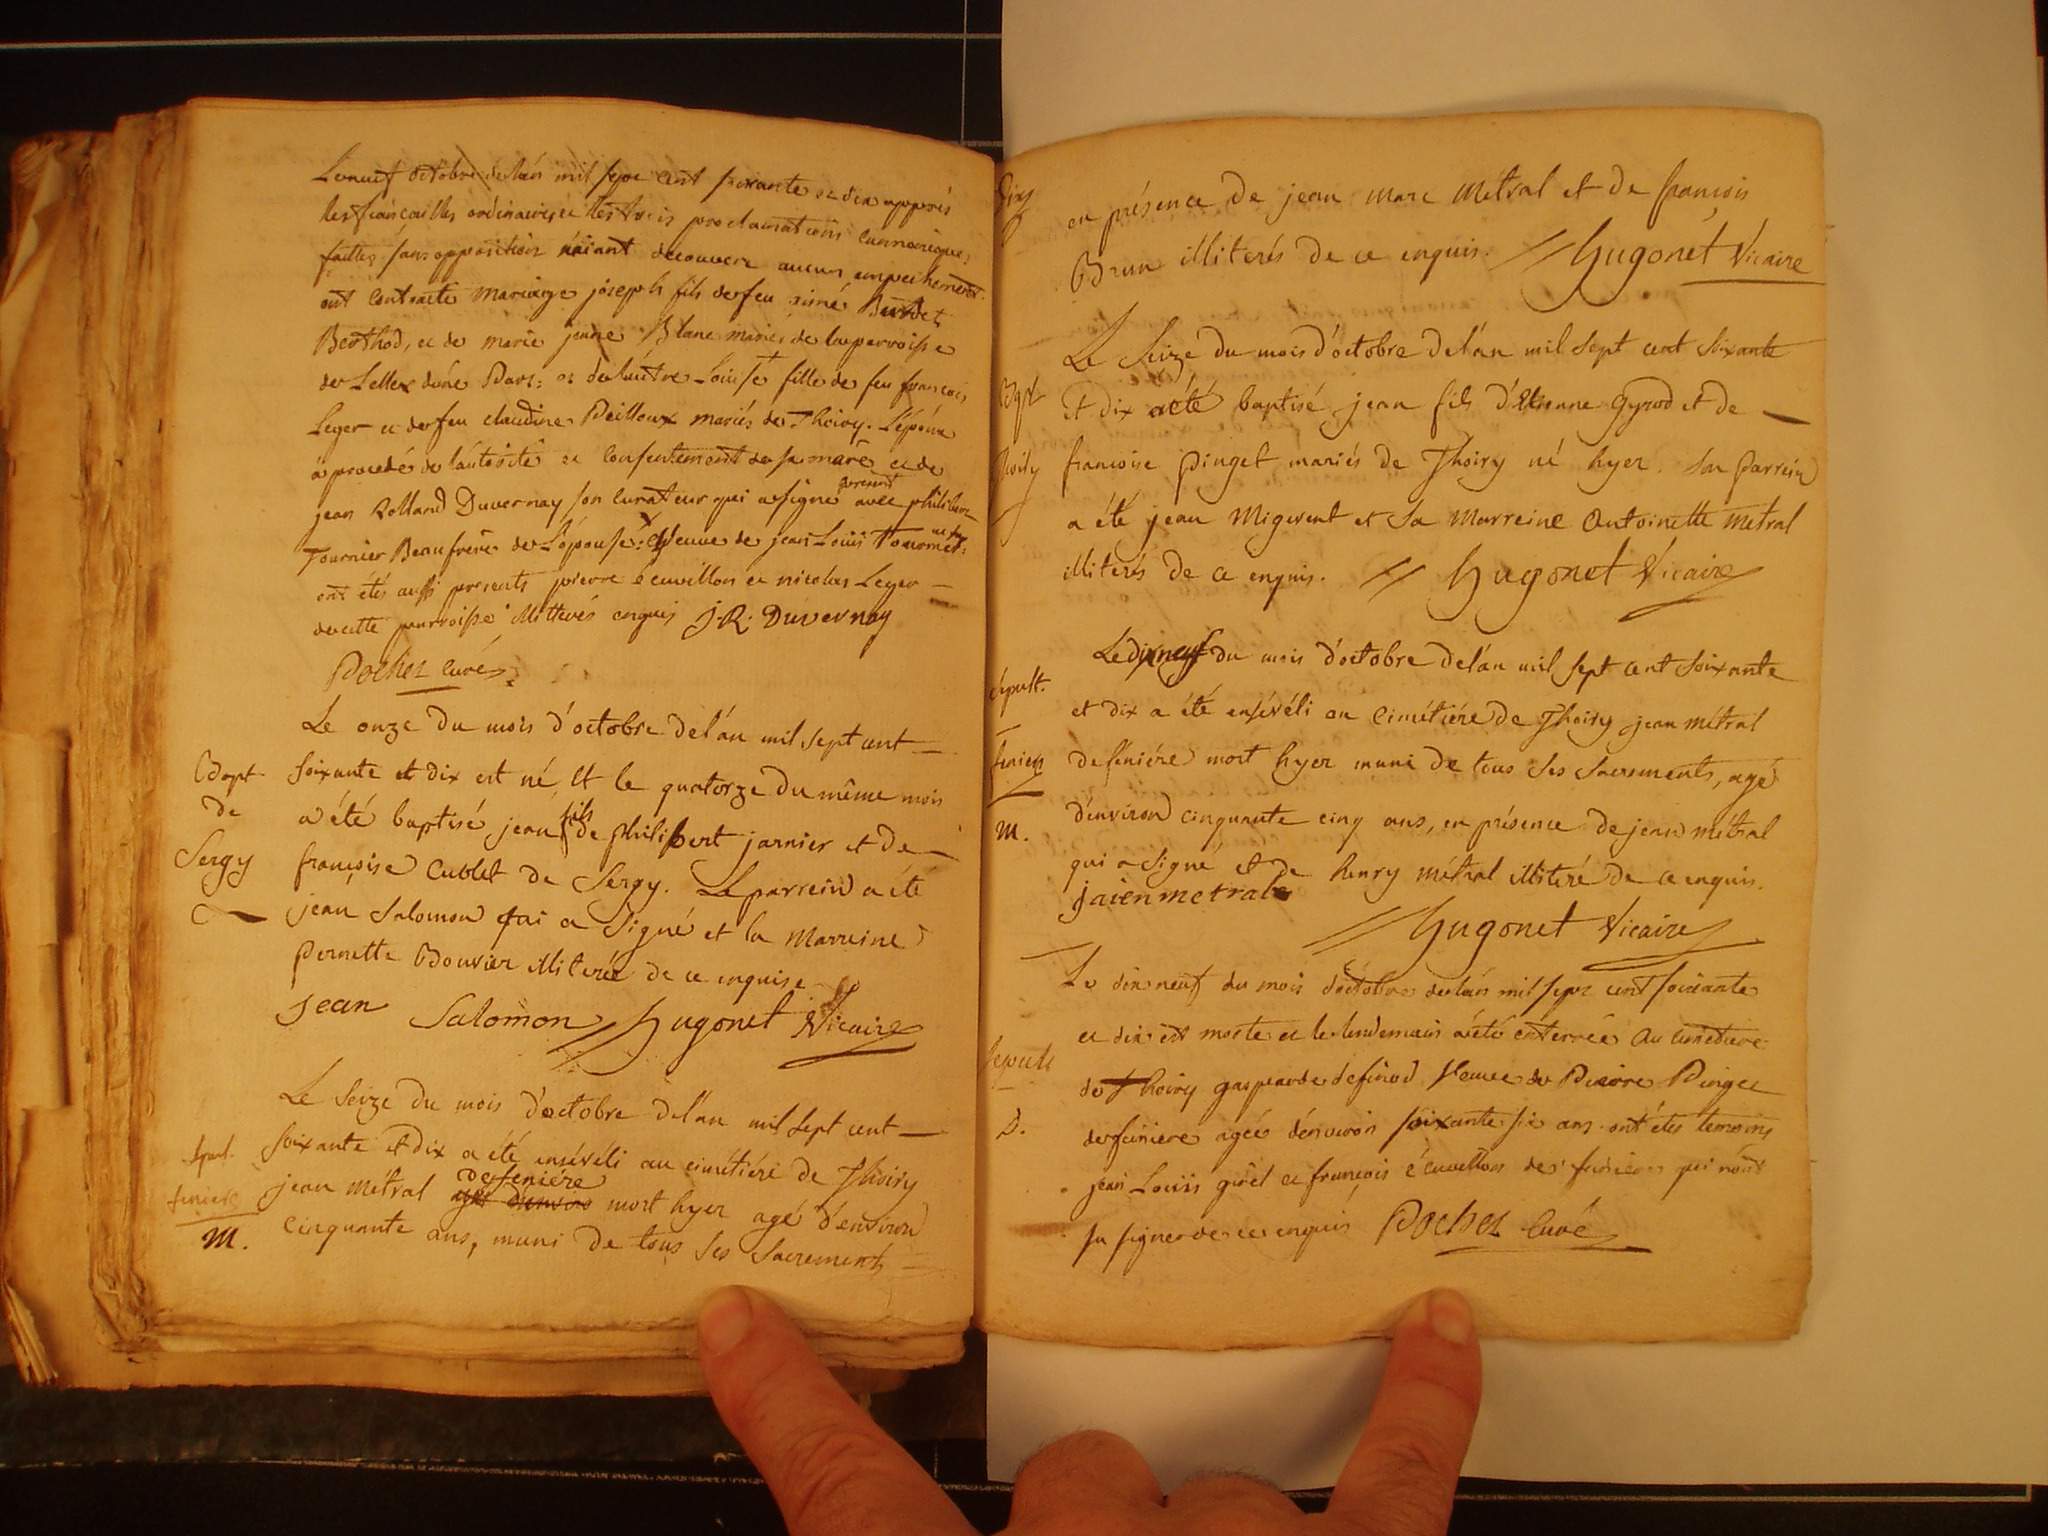 Le neuf octobre de l'an mil sept cent soixante et dix apprés
les fiançailles ordinaires et les trois proclamations cannoniques
faittes sans opposition n'aiant decouvert aucun empechement
ont contracté mariage joseph fils de feu aimé
Berthod, et de marie jeane Blanc mariés de la parroisse
de Sellex d'une Part: et de l'autre Louise fille de feu françois
Leger et de feu claudine Peilloux mariés de Thoiry. L'épouse
a procedé de l'autorité et consentement de sa mare et de
jean Rolland Duvernay son curateur qui a signé present avec philibert
Tournier Beaufrere de L'épouse: Veuve de jean Louis
ont étés aussi presents pierre ecuvillon et nicolas Leger
de cette parroisse illitterés enquis J. R. Duvernay
Pochet curé
Le onze du mois d'octobre de l'an mil sept cent
Bapt. soixante et dix est né, et le quatorze du même mois
de a été baptisé, jean fils de philibert jarnier et de
Sergy françoise Cublet de Sergy. Le parrein a été
jean Salomon qui a signé et la Marreine
Pernette Bouvier illiterée de ce enquise
jean Salomon Hugonet Vicaire
Le Seize du mois d'octobre de l'an mil sept cent
Sepul. soixante et dix a été ensévéli au cimétiére de Thoiry
feniere jean métral de feniére mort hyer agé d'environ
M. cinquante ans, muni de tous ses sacrements
en présence de jean marc métral et de françois
Brun illiterés de ce enquis. Hugonet Vicaire
Le Seize du mois d'octobre de l'an mil sept cent soixante
Bapt et dix a été baptisé jean fils d'Etienne Gyrod et de
Thoiry françoise pinget mariés de Thoiry né hyer. son parrein
a été jean Migerent et sa Marreine Antoinette metral
illiterés de ce enquis. Hugonet Vicaire
Le dixneuf du mois d'octobre de l'an mil sept cent soixante
sépult. et dix a été ensévéli au cimétiére de Thoiry jean métral
feniere de féniére mort hyer muni de tous ses sacrements, agé
M. d'environ cinquante cinq ans, en présence de jean métral
qui a signé et de henry métral illiteré de ce enquis.
jaien metral
Hugonet Vicaire
Le dix neuf du mois d'octobre de l'an mil sept cent soixante
et dix est morte et le lendemain a été enterrée au cimetiere
sepult de Thoiry gasparde definod Veuve de Pierre Pinget
D. de feniere agée d'environ soixante six ans ont étés temoins
jean Louis girel et françois écuvillon de feniere qui n'ont
su signer de ce enquis Pochet Curé